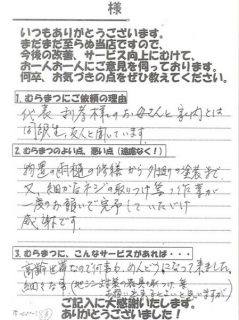 様
いつもありがとうございます。
まだまだ至らぬ当店ですので、
今後の改善、サービス向上にむけて、
お一人お一人にご意見を伺っております。
何卒、お気づきの点をぜひ教えてください。
1.むらまつにご依頼の理由
代表 様のお母さんと家内とは
同級生、友人と聞いています。
2.むらまつのよい点、悪い点(遠慮なく!)
物置の雨樋の修様から外廻の塗装まで
又、細かなネジの取りつけ等々作業が
一度のお願いで完了していただけ
感謝です。
3.むらまつに、こんなサービスがあれば・・・
高齢世帯なので何事も、めんどうになって来ました。
細々な事
ご記入に大感謝いたします。
ありがとうございました!